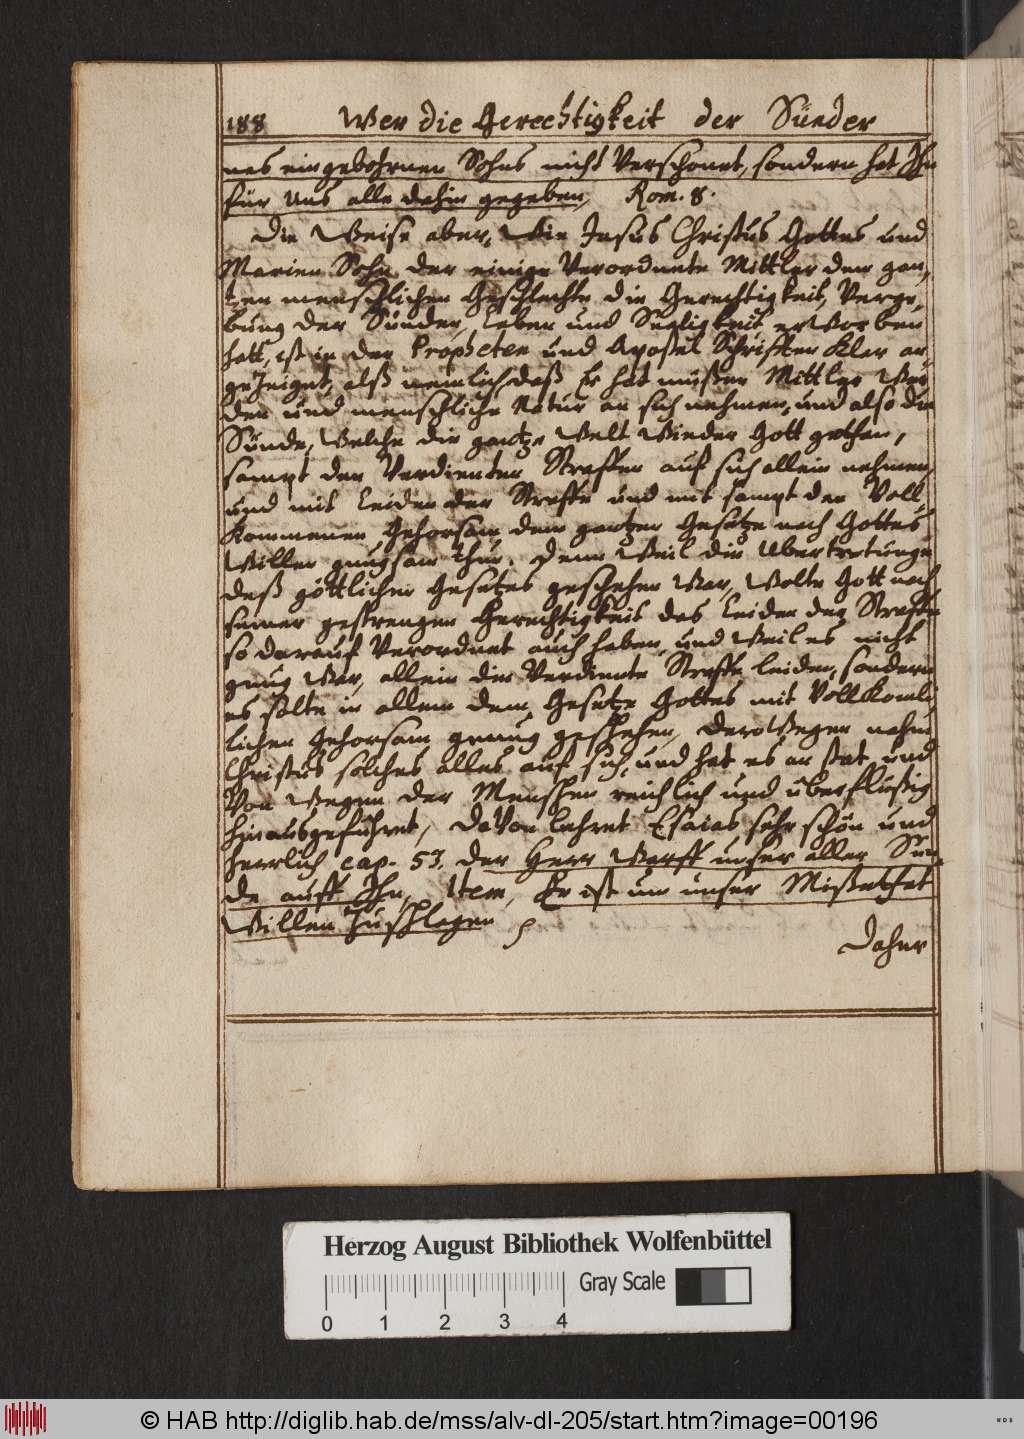 188 Wer die Gerechtigkeit der Süeder
nes eingebohrnen Sohns nicht Verschonet, sondern hat Ihn
für Uns alle dahin gegeben, Rom. 8.
Die Weise aber, Wie Jesus Christus Gottes und
Marien Sohn der einige Verordnete Mittler dem gan,
tzen menschlichen Geschlechte die Gerechtigkeit, Verge,
bung der Sünden, Leben und Seeligkeit erworben
hatt, ist in der Propheten und Apostel Schrifften Klar an,
gezeiget, alß nemlich daß Er hat müßen Mittler Wer
den und menschliche Natur an sich nehmen, und also die
Sünde, Welche die gantze Welt Wieder Gott gethan,
sampt der Verdienten Straffen auf sich allein nehmen,
und mit Leiden der Straffe und mit sampt der Voll
Kommenen Gehorsam dem gantzen Gesetze nach Gottes
Willen gnugsam thun. Denn Weil die Ubertretunge
deß göttlichen Gesetzes geschehen War, Wolte Gott nach
seiner gestrengen Gerechtigkeit das Leiden der Straffe
so darauf Verordnet auch haben, und Weil es nicht
gnug War, allein die Verdiente Straffe leiden, sondern
es solte in allem dem Gesetze Gottes mit Vollkomli
lichen Gehorsam gnung geschehen, DeroWegen nahm
Christus solches alles auf sich, und hat es an stat und
Von Wegen der Menschen reichlich und überflüßig
hinausgeführet, DaVon lehret Esaias sehr schön und
herrlich cap. 53. Der Herr Warff unser aller Sün
de auff Ihn, Item, Er ist um unser Mißethat
Willen Zuschlagen
Daher
Herzog August Bibliothek Wolfenbüttel
Gray Scale
0 1 2 3 4
© HAB http://diglib.hab.de/mss/alv-dl-205/start.htm?image=00196